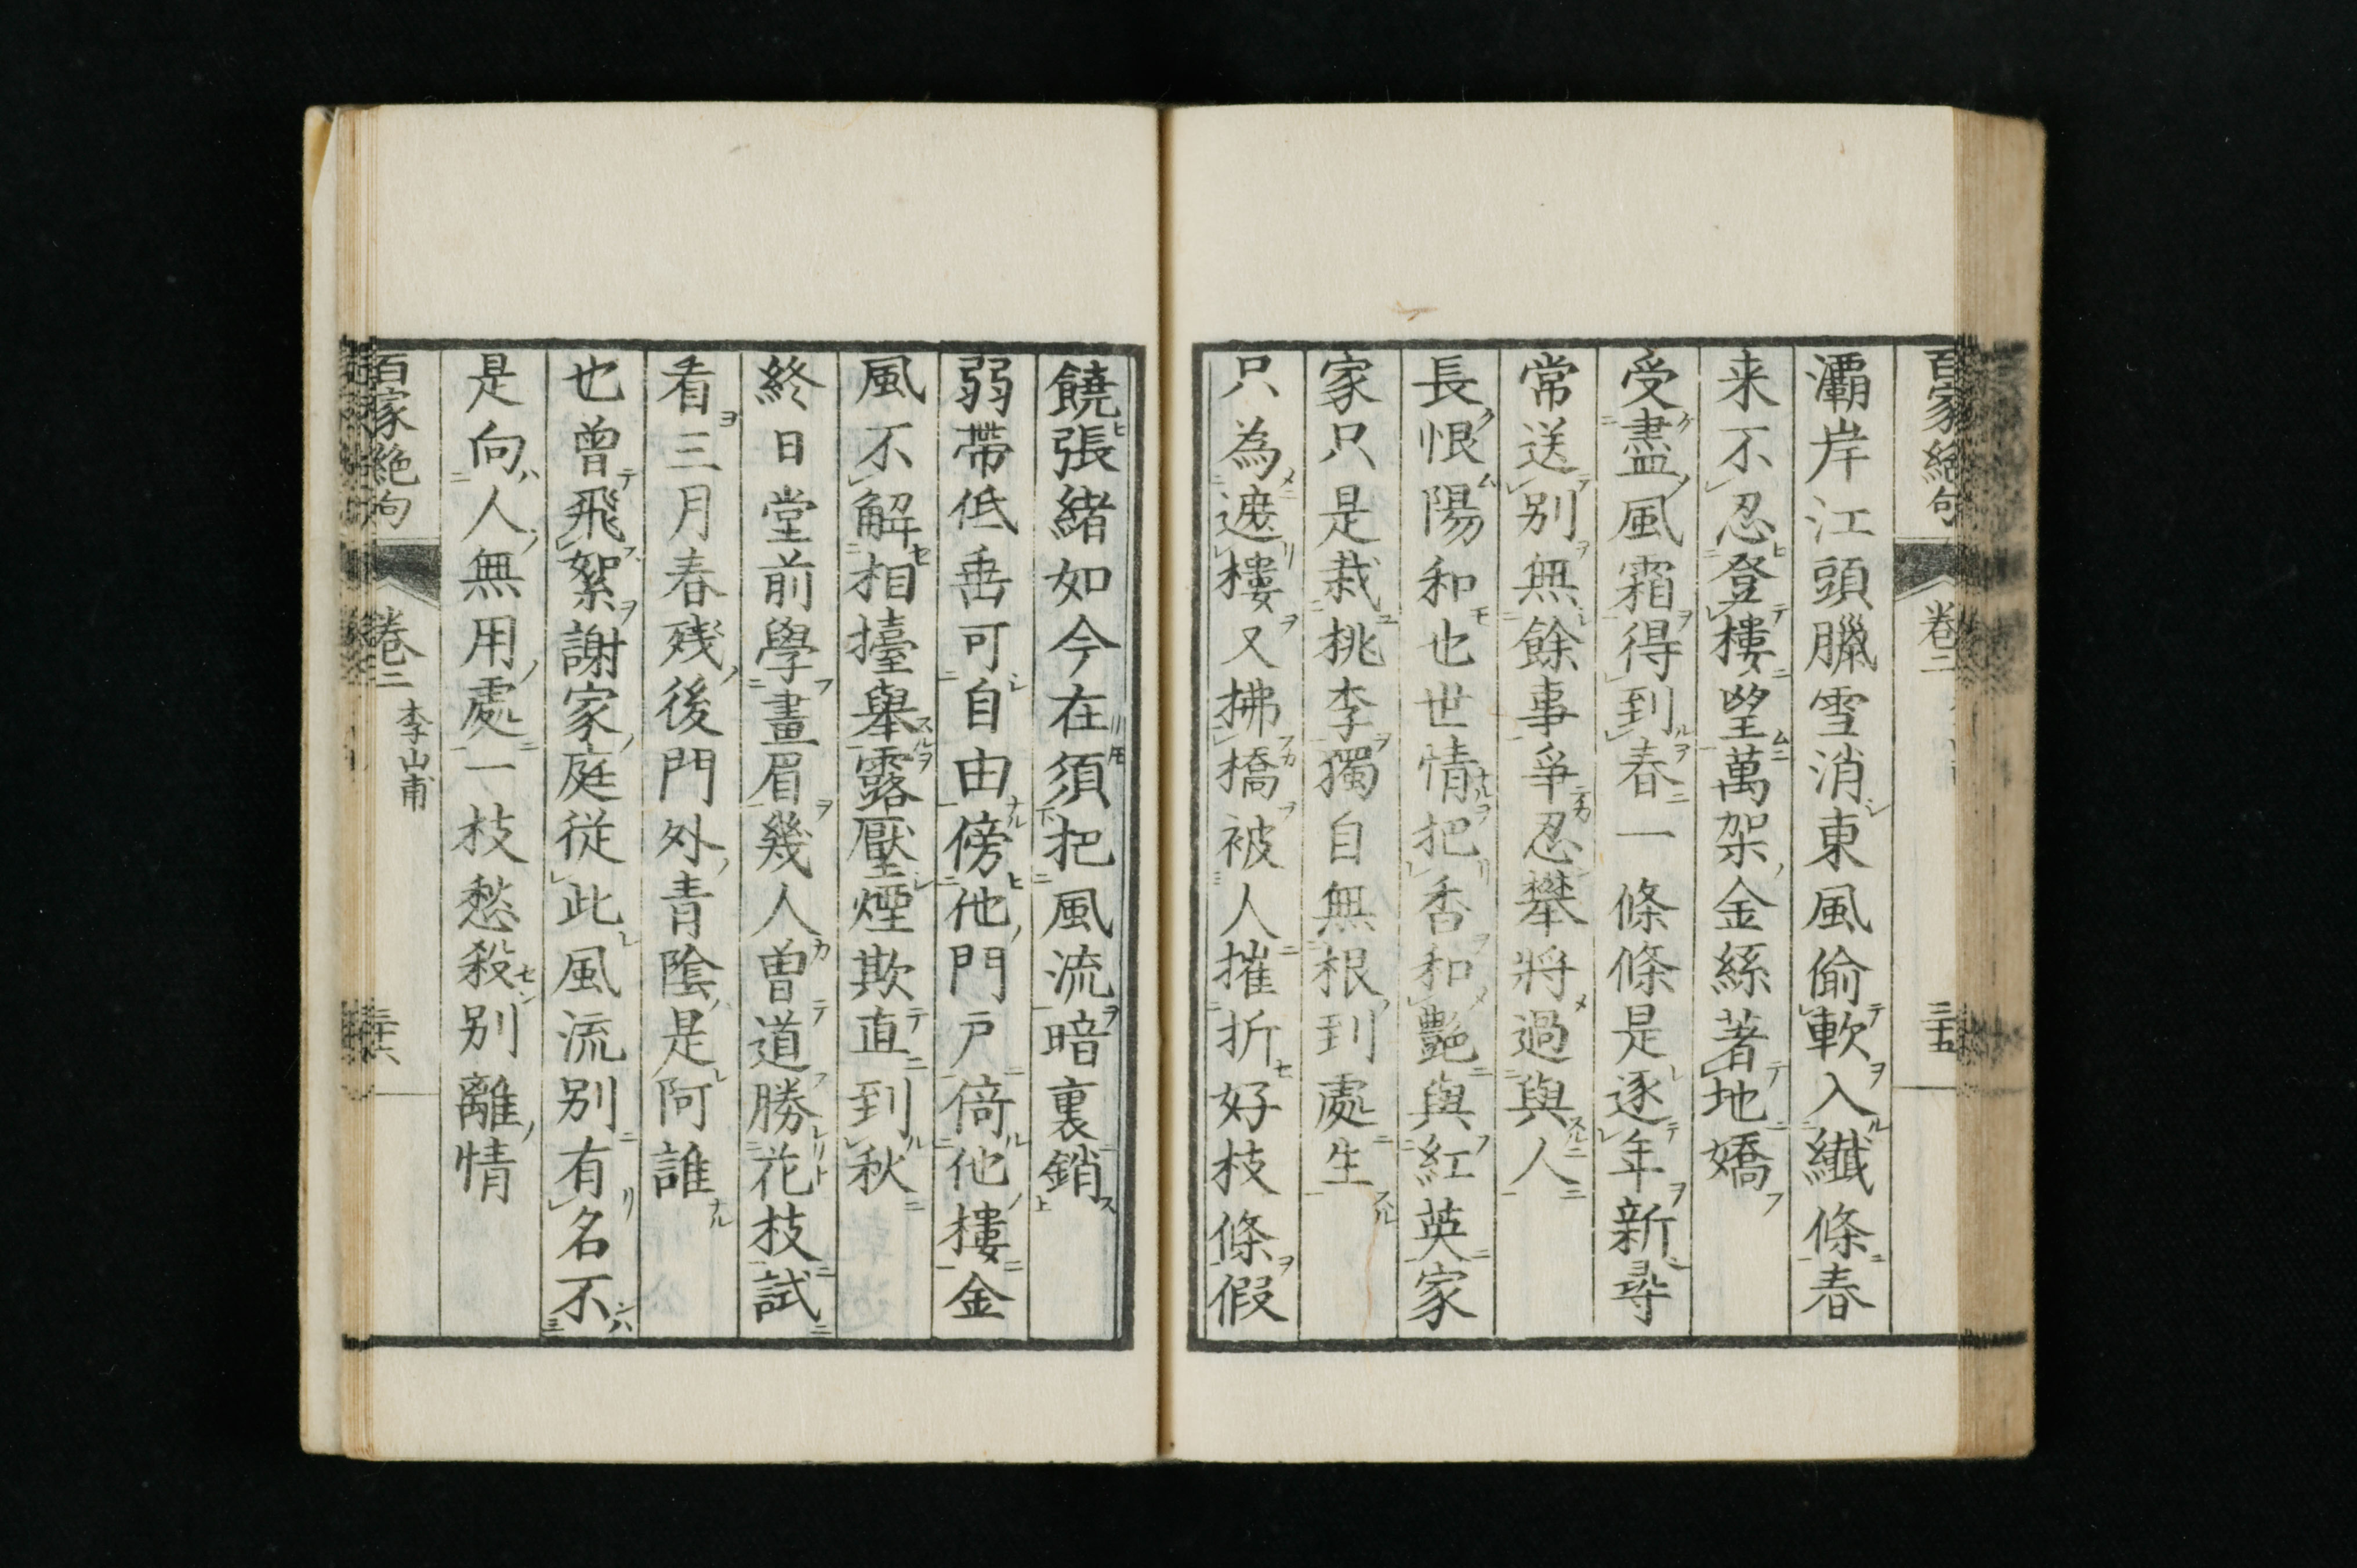 百家絶句 卷二 三十五
灞岸江頭臘雪消東風偷軟入纖條春
来不忍登樓望萬架金絲著地嬌
受盡風霜得到春一條條是逐年新尋
常送别無餘事爭忍攀將過與人
長恨陽和也世情把香和艷與紅英家
家只是栽桃李獨自無根到處生
只為遮樓又拂橋被人摧折好枝條假
饒張緒如今在須把風流暗裏銷
弱帶低垂可自由傍他門戸倚他樓金
風不解相擡舉露壓煙欺直到秋
終日堂前學畫眉幾人曽道勝花枝試
看三月春殘後門外青陰是阿誰
也曾飛絮謝家庭從此風流别有名不
是向人無用處一枝愁殺别離情
百家絶句 卷二 李山甫 三十六